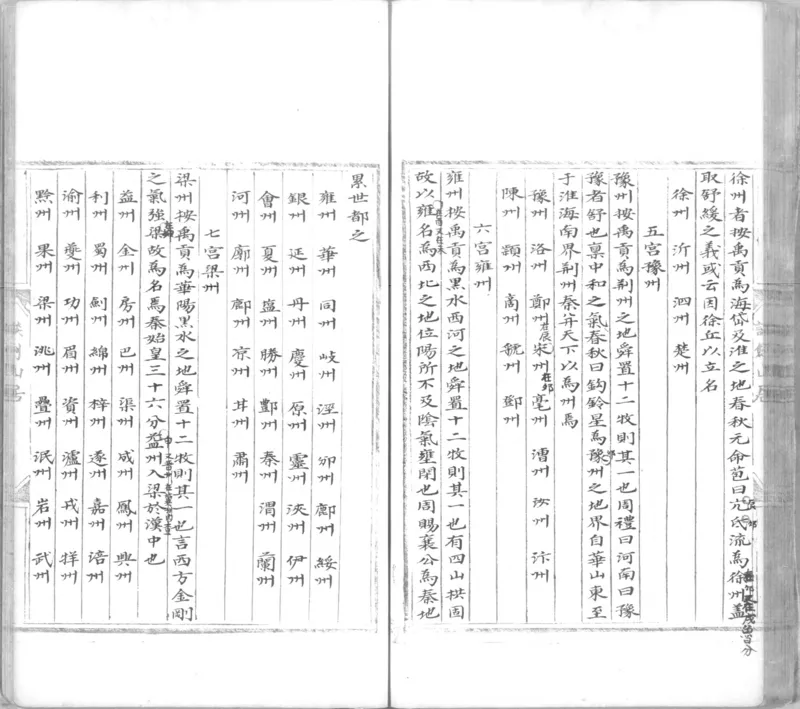 徐州者按禹貢為海岱及淮之地春秋元命苞曰亢氐流為徐州蓋
取舒緩之義或云因徐丘以立名
徐州 沂州 泗州 楚州
五宮豫州
豫州按禹貢為荆州之地舜置十二牧則其一也周禮曰河南曰豫
豫者舒也禀中和之氣春秋曰鈎鈐星為豫州之地界自華山東至
于淮海南界荆州秦并天下以為州焉
豫州 洛州 鄭州 宋州 亳州 漕州 汝州 汴州
陳州 頴州 商州 虢州 鄧州
六宮雍州
雍州按禹貢為黑水西河之地舜置十二牧則其一也有四山拱固
故以雍名為西北之地位陽所不及陰氣壅閉也周賜襄公為秦地
累世都之
雍州 華州 同州 岐州 涇州 邠州 鄜州 綏州
銀州 延州 丹州 慶州 原州 靈州 浹州 伊州
會州 夏州 塩州 勝州 酆州 秦州 渭州 蘭州
河州 廓州 鄯州 凉州 耳州 肅州
七宮梁州
梁州按禹貢為華陽黑水之地舜置十二牧則其一也言西方金剛
之氣強梁故為名焉秦始皇三十六分益州入梁於漢中也
益州 金州 房州 巴州 渠州 成州 鳳州 興州
利州 蜀州 劍州 綿州 梓州 遂州 嘉州 涪州
渝州 夔州 功州 眉州 資州 瀘州 戎州 牂州
黔州 果州 梁州 洮州 疊州 泯州 岩州 武州